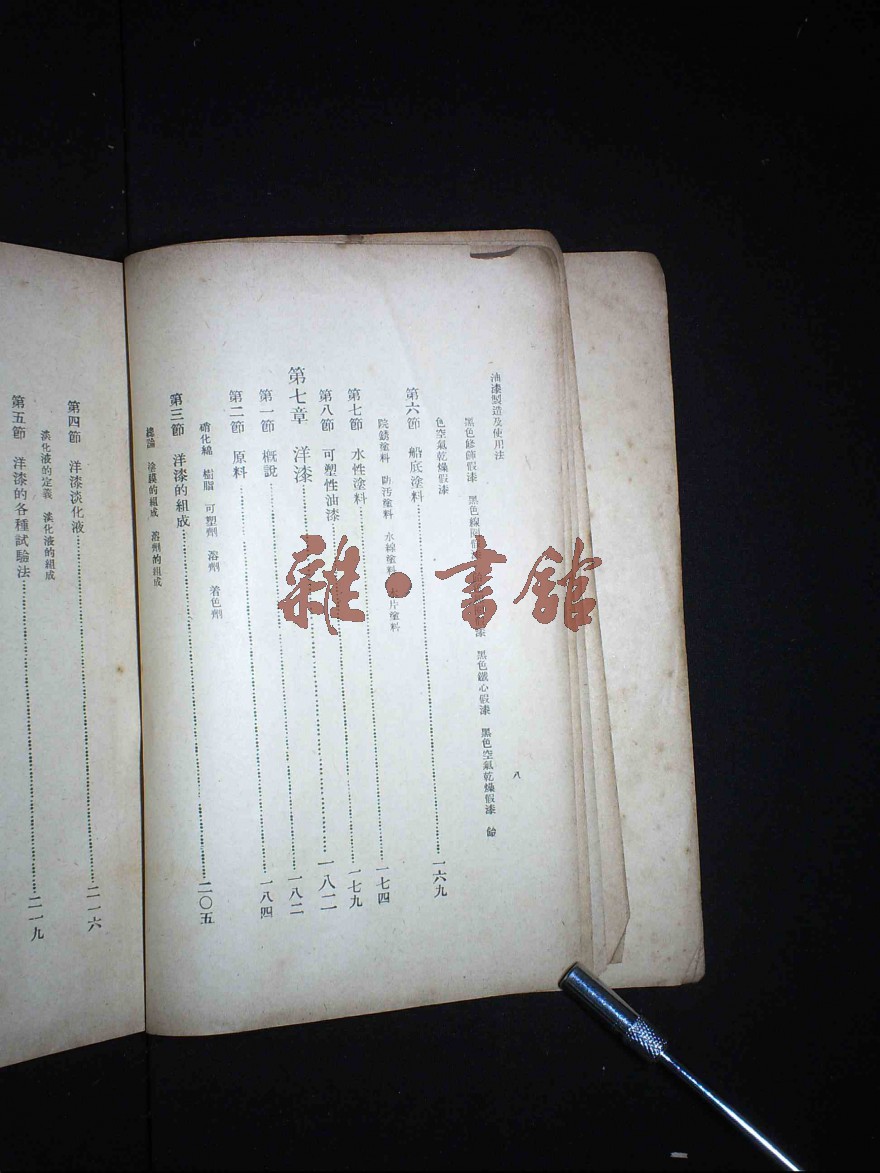 油漆製造及使用法
八
黑色修飾假漆 黑色線圈假漆 黑色鐵心假漆 黑色空氣乾燥假漆
色空氣乾燥假漆
第六節 船底塗料……一六九
防銹塗料 防汚塗料 水線塗料 木片塗料
第七節 水性塗料……一七四
第八節 可塑性油漆……一七九
第七章 洋漆……一八二
第一節 概說……一八二
第二節 原料……一八四
硝化綿 樹脂 可塑劑 溶劑 着色劑
第三節 洋漆的組成……二〇五
總論 塗膜的組成 溶劑的組成
第四節 洋漆淡化液……二一六
淡化液的定義 淡化液的組成
第五節 洋漆的各種試驗法……二一九
雜·書館